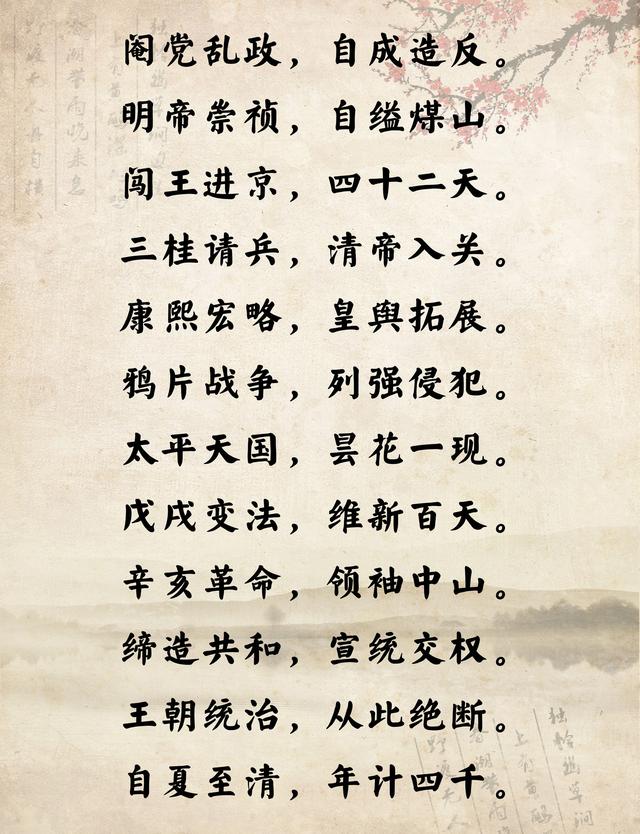 阉党乱政，自成造反。
明帝崇祯，自缢煤山。
闯王进京，四十二天。
三桂请兵，清帝入关。
康熙宏略，皇舆拓展。
鸦片战争，列强侵犯。
太平天国，昙花一现。
戊戌变法，维新百天。
辛亥革命，领袖中山。
缔造共和，宣统交权。
王朝统治，从此绝断。
自夏至清，年计四千。
独怜幽草涧
上有黄鹂